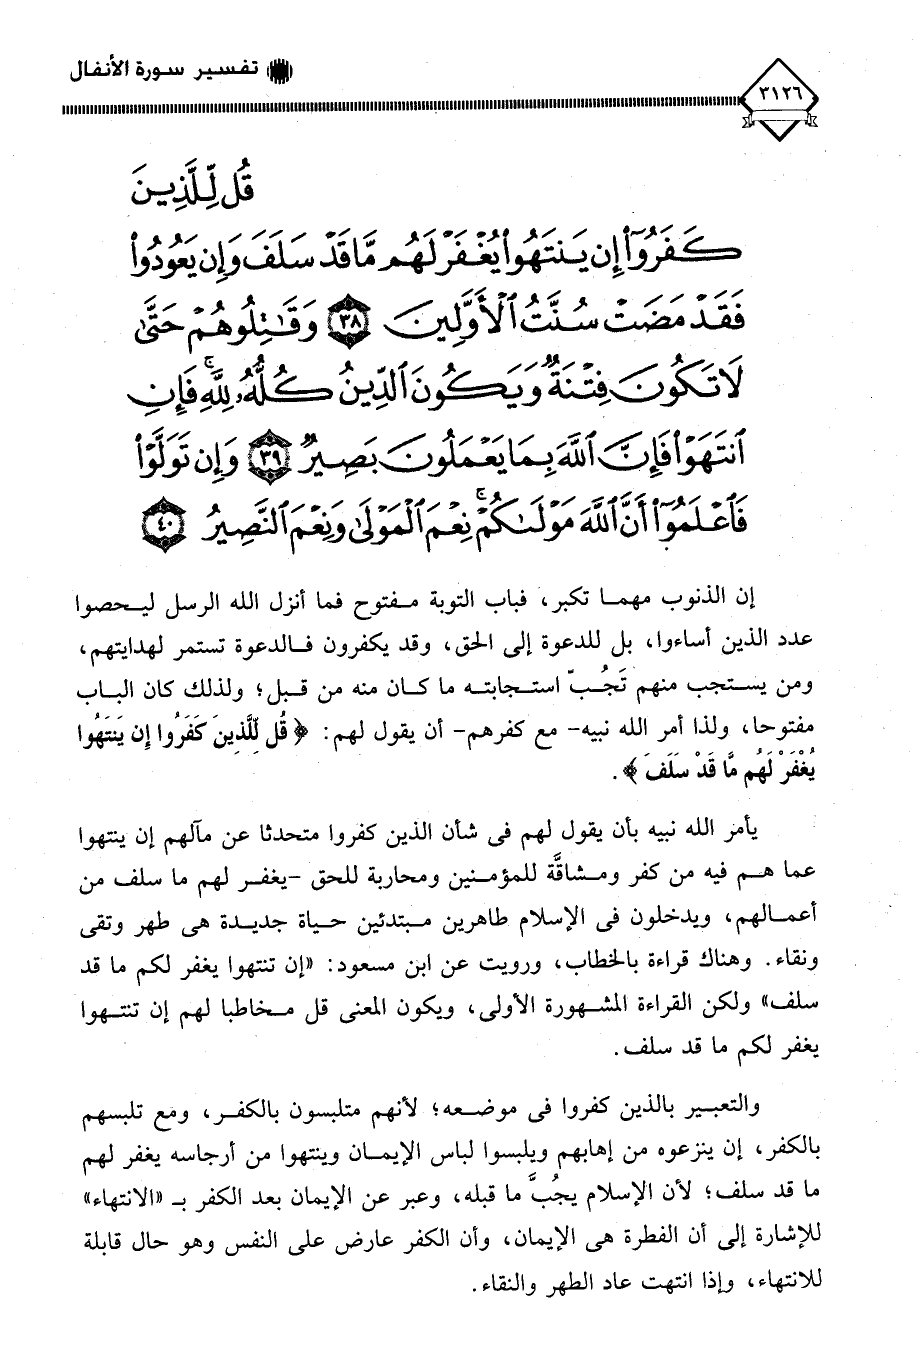 تفسير سورة الأنفال
٣١٢٦
قُل لِّلَّذِينَ
كَفَرُوٓا۟ إِن يَنتَهُوا۟ يُغْفَرْ لَهُم مَّا قَدْ سَلَفَ وَإِن يَعُودُوا۟
فَقَدْ مَضَتْ سُنَّتُ ٱلْأَوَّلِينَ ٣٨ وَقَٰتِلُوهُمْ حَتَّىٰ
لَا تَكُونَ فِتْنَةٌ وَيَكُونَ ٱلدِّينُ كُلُّهُۥ لِلَّهِ ۚ فَإِنِ
ٱنتَهَوْا۟ فَإِنَّ ٱللَّهَ بِمَا يَعْمَلُونَ بَصِيرٌ ٣٩ وَإِن تَوَلَّوْا۟
فَٱعْلَمُوٓا۟ أَنَّ ٱللَّهَ مَوْلَىٰكُمْ ۚ نِعْمَ ٱلْمَوْلَىٰ وَنِعْمَ ٱلنَّصِيرُ ٤٠
إن الذنوب مهما تكبر، فباب التوبة مفتوح فما أنزل الله الرسل ليحصوا
عدد الذين أساءوا، بل للدعوة إلى الحق، وقد يكفرون فالدعوة تستمر لهدايتهم،
ومن يستجب منهم تَجُبّ استجابته ما كان منه من قبل؛ ولذلك كان الباب
مفتوحا، ولذا أمر الله نبيه- مع كفرهم- أن يقول لهم: ﴿ قُل لِّلَّذِينَ كَفَرُوا إِن يَنتَهُوا
يُغْفَرْ لَهُم مَّا قَدْ سَلَفَ ﴾.
يأمر الله نبيه بأن يقول لهم فى شأن الذين كفروا متحدثا عن مآلهم إن ينتهوا
عما هم فيه من كفر ومشاقَّة للمؤمنين ومحاربة للحق -يغفر لهم ما سلف من
أعمالهم، ويدخلون فى الإسلام طاهرين مبتدئين حياة جديدة هى طهر وتقى
ونقاء. وهناك قراءة بالخطاب، ورويت عن ابن مسعود: «إن تنتهوا يغفر لكم ما قد
سلف» ولكن القراءة المشهورة الأولى، ويكون المعنى قل مخاطبا لهم إن تنتهوا
يغفر لكم ما قد سلف.
والتعبير بالذين كفروا فى موضعه؛ لأنهم متلبسون بالكفر، ومع تلبسهم
بالكفر، إن ينزعوه من إهابهم ويلبسوا لباس الإيمان وينتهوا من أرجاسه يغفر لهم
ما قد سلف؛ لأن الإسلام يجُبَّ ما قبله، وعبر عن الإيمان بعد الكفر بـ «الانتهاء»
للإشارة إلى أن الفطرة هى الإيمان، وأن الكفر عارض على النفس وهو حال قابلة
للانتهاء، وإذا انتهت عاد الطهر والنقاء.